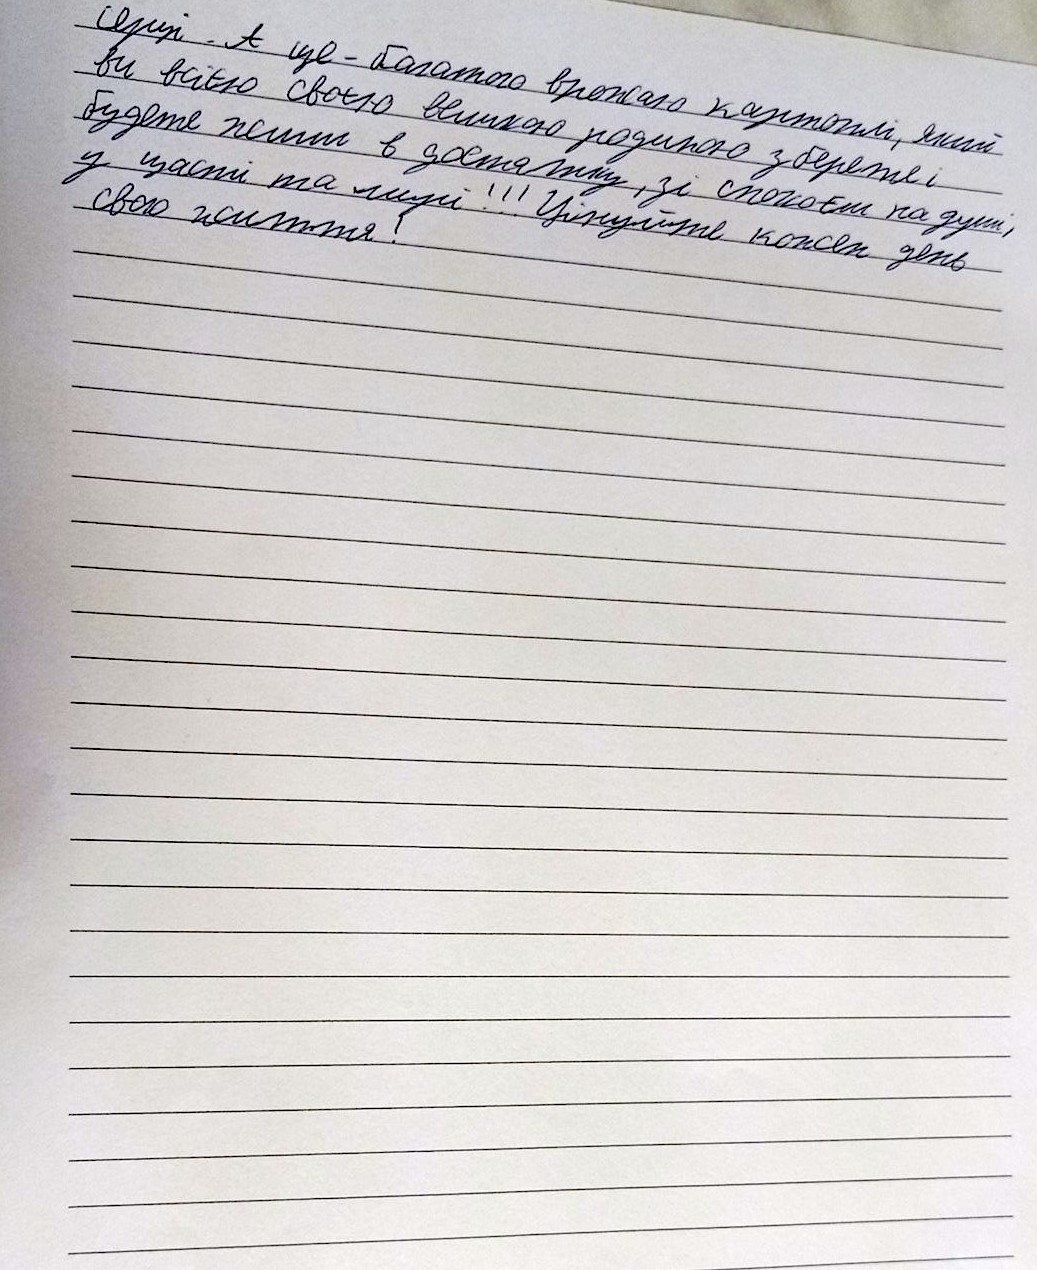 серці. А ще - багатого врожаю картоплі, який
ви всією своєю великою родиною зберете і
будете жити в достатку, зі спокоєм на душі,
у щасті та мирі!!! Цінуйте кожен день
свого життя!